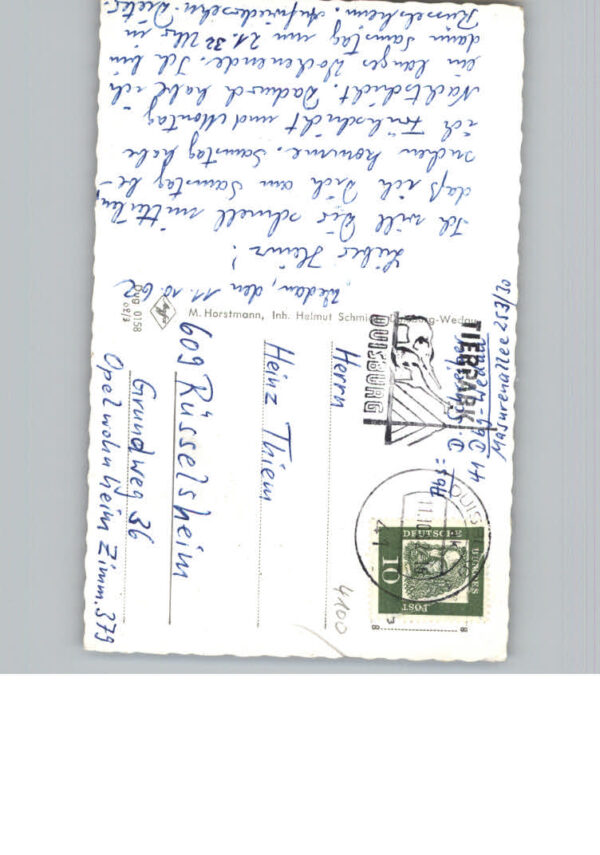 Wedau, den 11.10.62
Lieber Heinz!
Ich will Dir schnell mitteilen,
daß ich Dich am Samstag be-
suchen komme. Samstag habe
ich Frühschicht und Montag
Nachtschicht. Dadurch habe ich
ein langes Wochenende. Ich bin
dann Samstag um 21.32 Uhr in
Rüsselsheim. Aufwiedersehn. Dieter.
M. Horstmann, Inh. Helmut Schmidt, Duisburg-Wedau
Dug 0158
TIERPARK
DUISBURG
DEUTSCHE BUNDES
POST
10
41
Abs:
41 Dbg-Wedau
Masurenallee 253/30
Herrn
Heinz Thiem
609 Rüsselsheim
Grundweg 36
Opelwohnheim Zimm. 379
4100